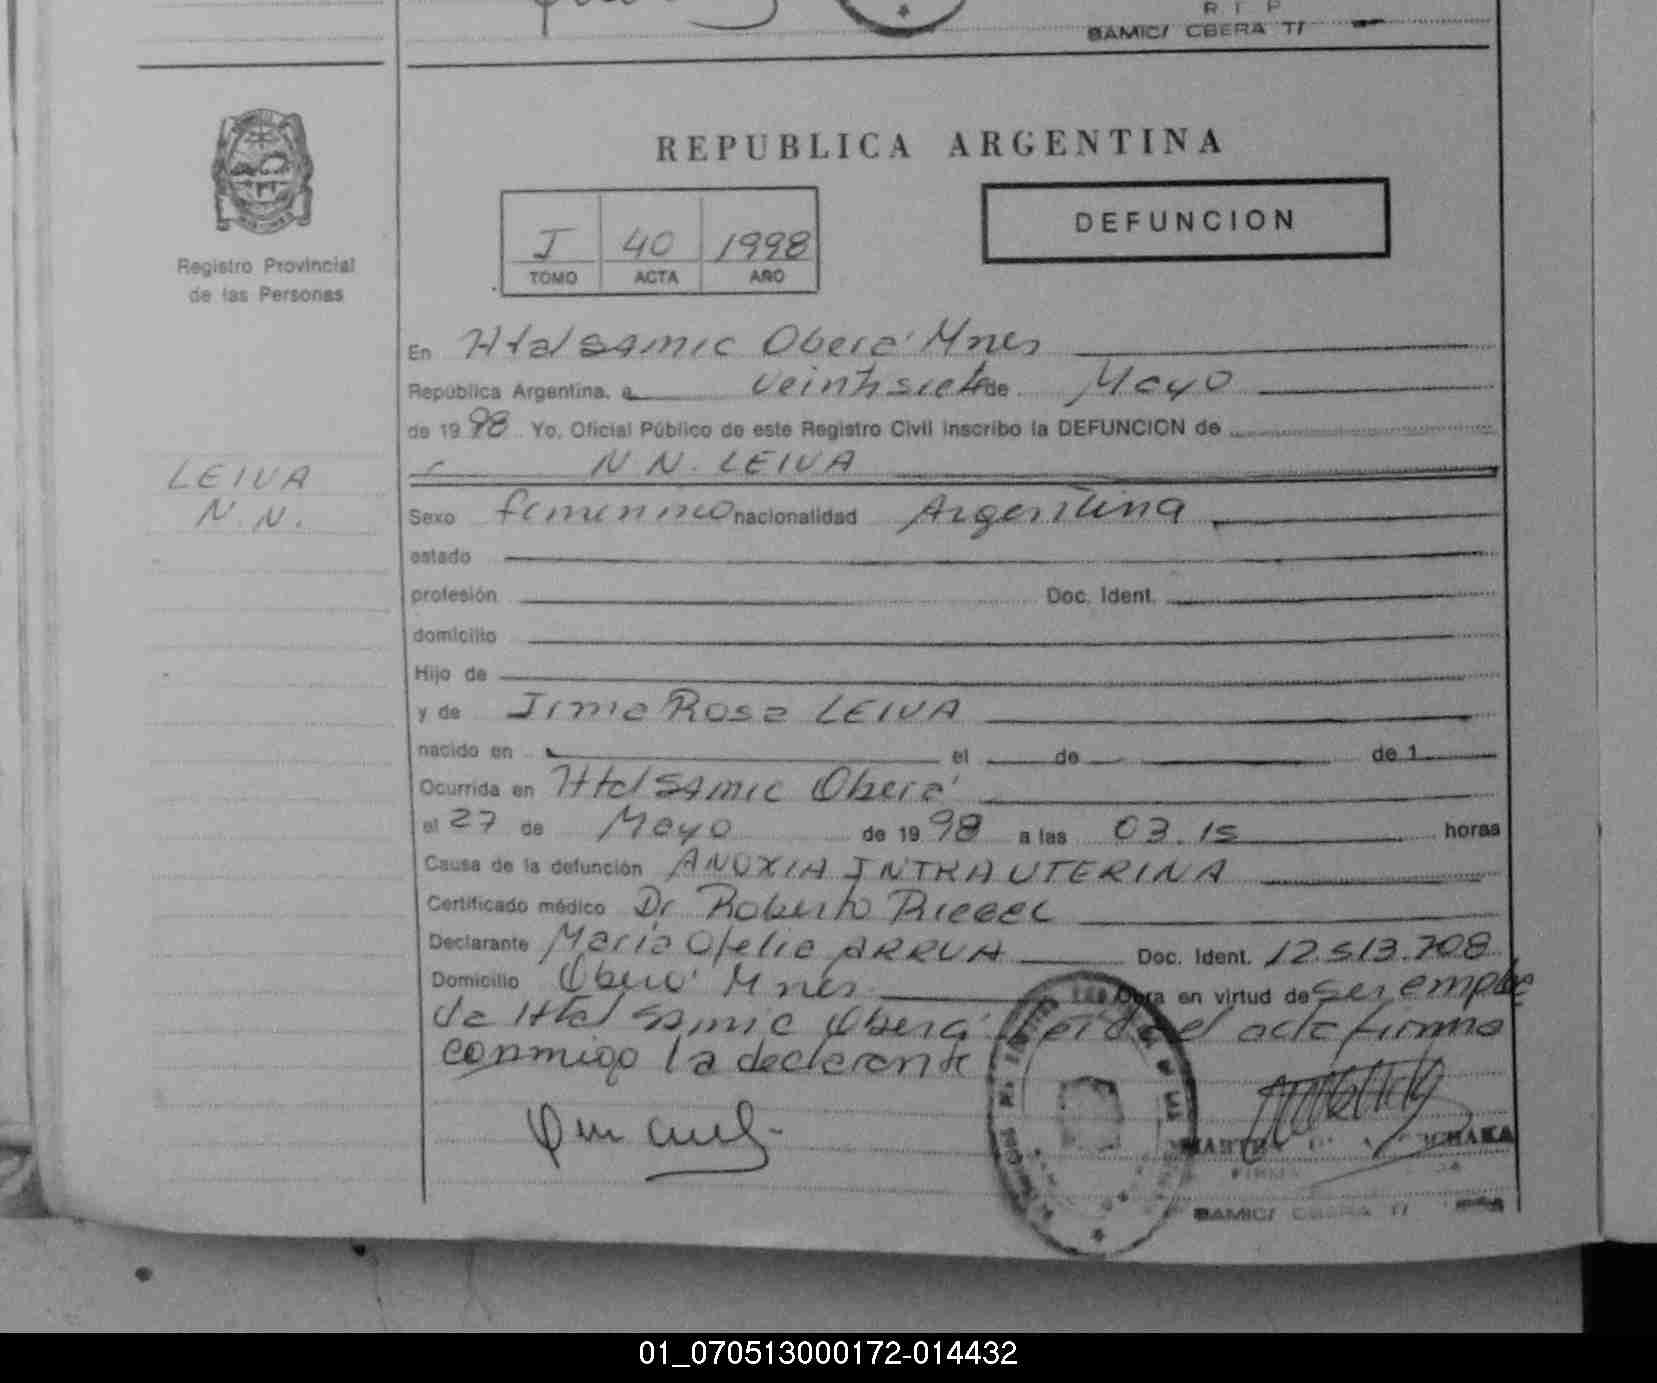 R T P
SAMIC/ OBERA
REPUBLICA ARGENTINA
DEFUNCION
I 40 1998
TOMO ACTA AÑO
Registro Provincial
de las Personas
En Htal Samic Oberá Mnes
República Argentina, a veintisiete de Mayo
de 1998 Yo, Oficial Público de este Registro Civil inscribo la DEFUNCION de
N N. LEIVA
LEIVA
N.N.
Sexo femenino nacionalidad Argentina
estado
profesión Doc. Ident.
domicilio
Hijo de
y de Irma Rosa LEIVA
nacido en el de de 1
Ocurrida en Htal Samic Oberá
el 27 de Mayo de 1998 a las 03.15 horas
Causa de la defunción ANOXIA INTRAUTERINA
Certificado médico Dr Roberto
Declarante María Ofelia ARRUA Doc. Ident. 12.513.708
Domicilio Oberá Mnes Obra en virtud de ser emple
da Htal Samic Oberá leida el acta firma
conmigo la declarante
SAMIC/ OBERA
01_070513000172-014432